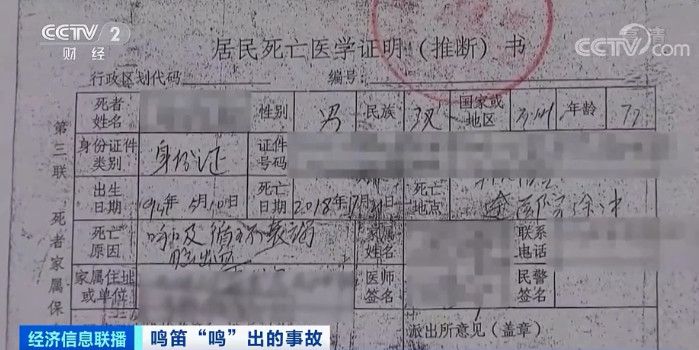 CCTV 2
财经
CCTV.com
高清
居民死亡医学证明（推断）书
行政区划代码 编号：
死者姓名 性别 民族 汉 国家或地区 年龄 77
身份证件类别 身份证 证件号码
出生日期 年5月10日 死亡日期 2018年 月 日 死亡地点
死亡原因 呼吸循环衰竭 家属姓名 联系电话
脑出血
家属住址或单位 医师签名 民警签名
派出所意见（盖章）
第三联 死者家属保
经济信息联播 鸣笛“鸣”出的事故